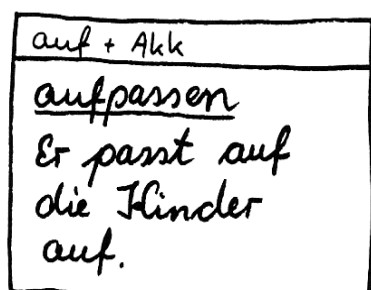 auf + Akk
aufpassen
Er passt auf
die Kinder
auf.